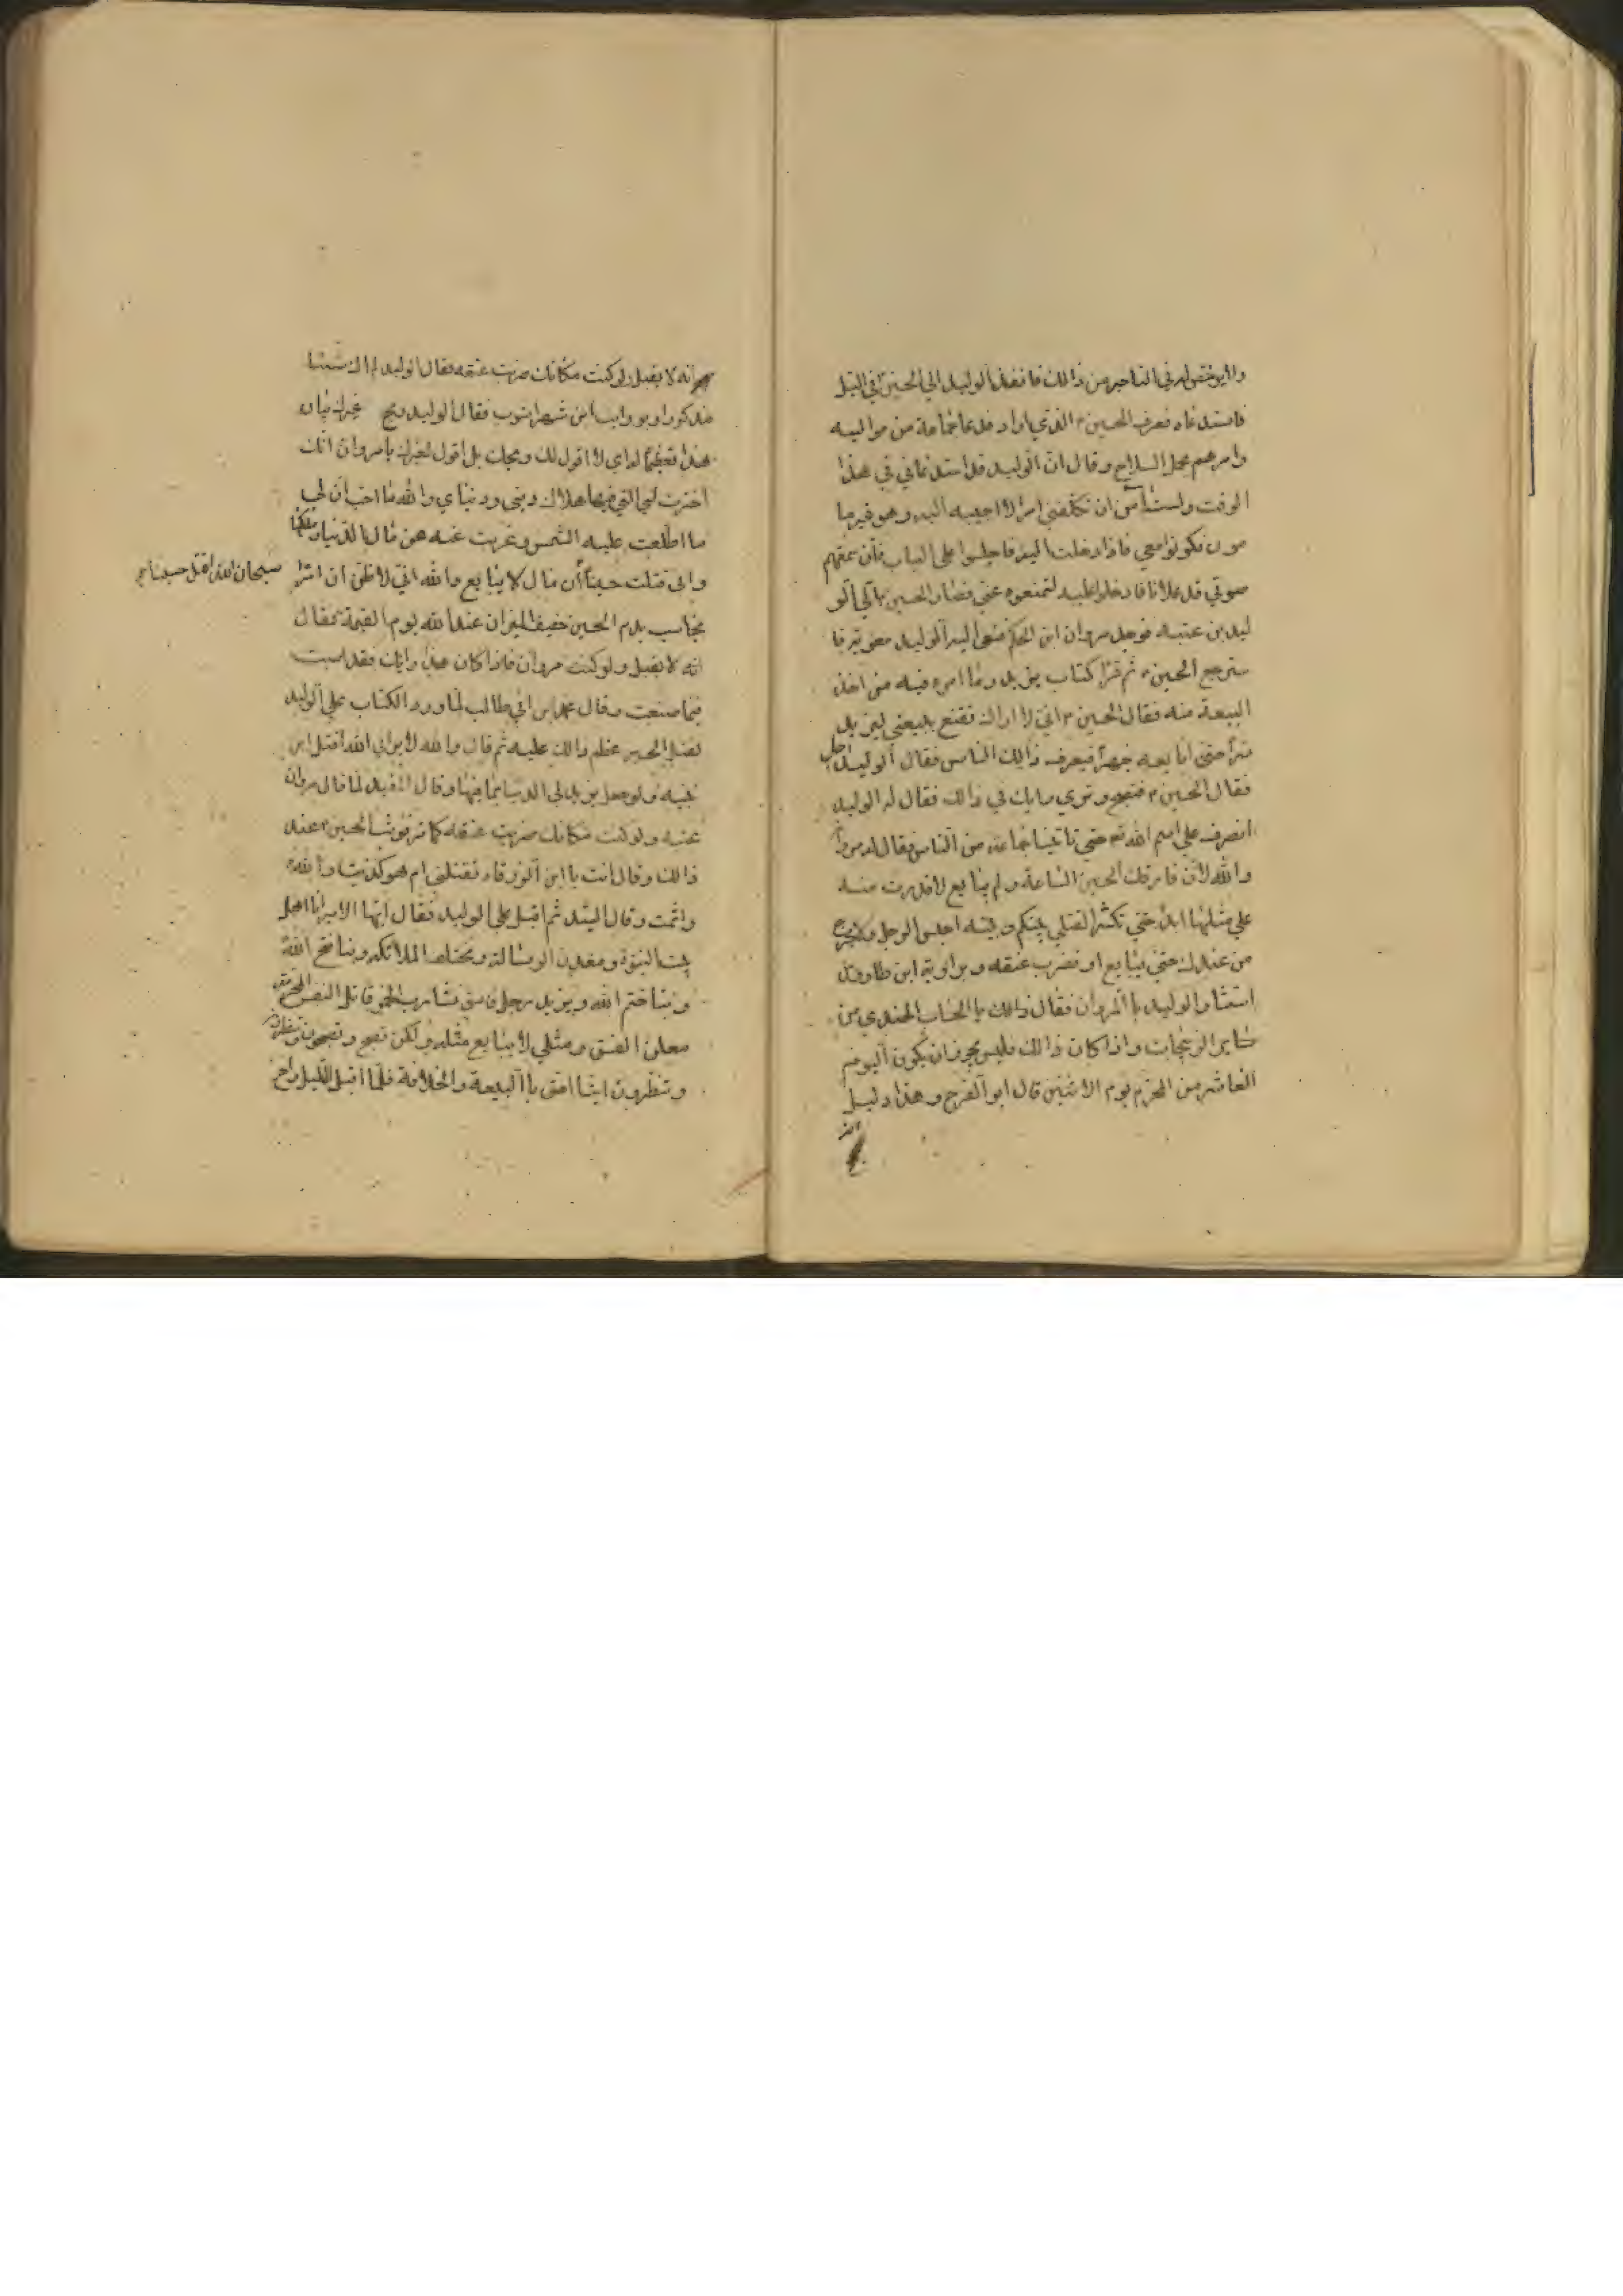 ولا يرخص له في التاخير من ذالك فانفذ الوليد الي الحسين في الليل
فاستدعاه فعرف الحسين الذي اراد فدعا جماعة من مواليه
وامرهم بحمل السلاح وقال ان الوليد قد استدعاني في هذا
الوقت ولست آمن ان تكلفني امرا لا اجيبه اليه وهو غير ما
مون فكونوا معي فاذا دخلت اليه فاجلسوا علي الباب فان سمعتم
صوتي قد علا فادخلوا عليه لتمنعوه عني فصار الحسين الي الو
ليد بن عتبه فوجد مروان ابن الحكم فنعي اليه الوليد معويه فا
سترجع الحسين ثم قرا كتاب يزيد وما امره فيه من اخذ
البيعة منه فقال الحسين اني لا اراك تقنع ببيعتي ليزيد
سرا حتي ابايعه جهرا فيعرف ذالك الناس فقال الوليد اجل
فقال الحسين فتصبح وتري رايك في ذالك فقال له الوليد
انصرف علي اسم الله حتي تاتينا جماعة من الناس فقال له مروان
والله لان فارقك الحسين الساعة ولم يبايع لا قدرت منه
علي مثلها ابدا حتي تكثر القتلي بينكم وبينه احبس الرجل ولا يخرج
من عندك حتي يبايع او تضرب عنقه وبراوية ابن طاوس
استشار الوليد بالمروان فقال ذالك
واذا كان ذالك فليس يجوز ان يكون اليوم
العاشر من المحرم يوم الاثنين قال ابو الفرج وهذا دليل
انه لا يقبل ولو كنت مكانك ضربت عنقه فقال الوليد لم اك شيئا
مذكورا فقال الوليد ويح غيرك
هذا لا اقول لك ويحك بل اقول لغيرك يا مروان انك
اخترت لي التي فيها هلاك ديني ودنياي والله ما احب ان لي
ما اطلعت عليه الشمس وغربت عنه من مال الدنيا وملكها
واني قتلت حسينا ان قال لا يبايع والله اني لاظن ان امرا
سبحان الله اقتل حسينا
يحاسب بدم الحسين خفيف الميزان عند الله يوم القيمة فقال
انه لا يقبل ولو كنت مروان فاذا كان هذا رايك فقد اصبت
فيما صنعت وقال محمد ابن ابي طالب لما ورد الكتاب علي الوليد
بقتل الحسين عظم ذالك عليه ثم قال والله لا يراني الله اقتل ابن
نبيه ولو جعل يزيد لي الدنيا بما فيها وقال المفيد لما قال مروان
ولو كنت مكانك ضربت عنقه وثب الحسين عند
ذالك وقال انت يا ابن الزرقاء تقتلني ام هو كذبت والله
واثمت وقال السيد ثم اقبل علي الوليد فقال ايها الامير انا اهل
بيت النبوة ومعدن الرسالة ومختلف الملائكه وبنا فتح الله
وبنا ختم الله ويزيد رجل فاسق شارب الخمر قاتل النفس المحرمة
معلن الفسق ومثلي لا يبايع مثله ولكن نصبح وتصبحون وننظر
وتنظرون اينا احق باالبيعة والخلافة فلما اقبل الليل